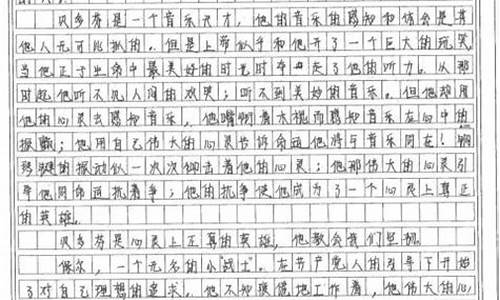 贝多芬是一个音乐天才，他的音乐的感知和体会是其
他人无可比拟的。但是上帝似乎和他开了一个巨大的玩笑，
当他正于生命中最美好的时光时夺走了他的听力。从那
时起他听不见人间的欢笑；听不到美妙的音乐。但他却用
他的心灵去感知音乐，他嘴咬着木棍而感知音乐在心中的
振颤；他用自己伟大的心灵告诉命运他将与音乐同在！钢
琴键的振动似一次次叩击着他的心灵；他那伟大的心灵引
导他同命运抗着争；他的抗争使他成为了一个心灵上真正
的英雄。
贝多芬是心灵上正真的英雄，他教会我们坚
保尔，一个无名的小"战士"。在共产党人的引导下开始
了对自己理想的追求。他不知疲倦地工作着，他伟大的心